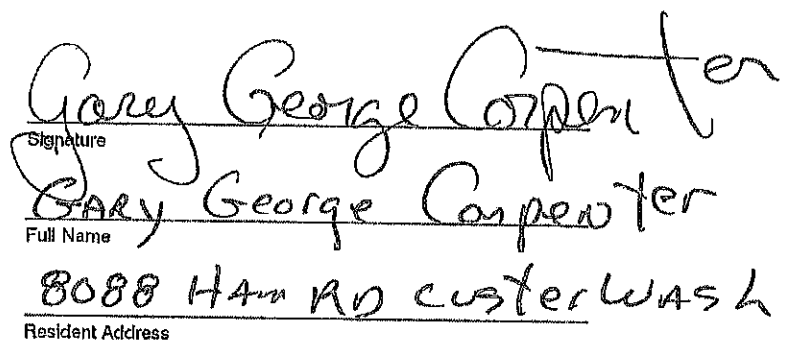 Gary George Carpenter
Signature
GARY George Carpenter
Full Name
8088 HAm RD CusterWASh
Resident Address